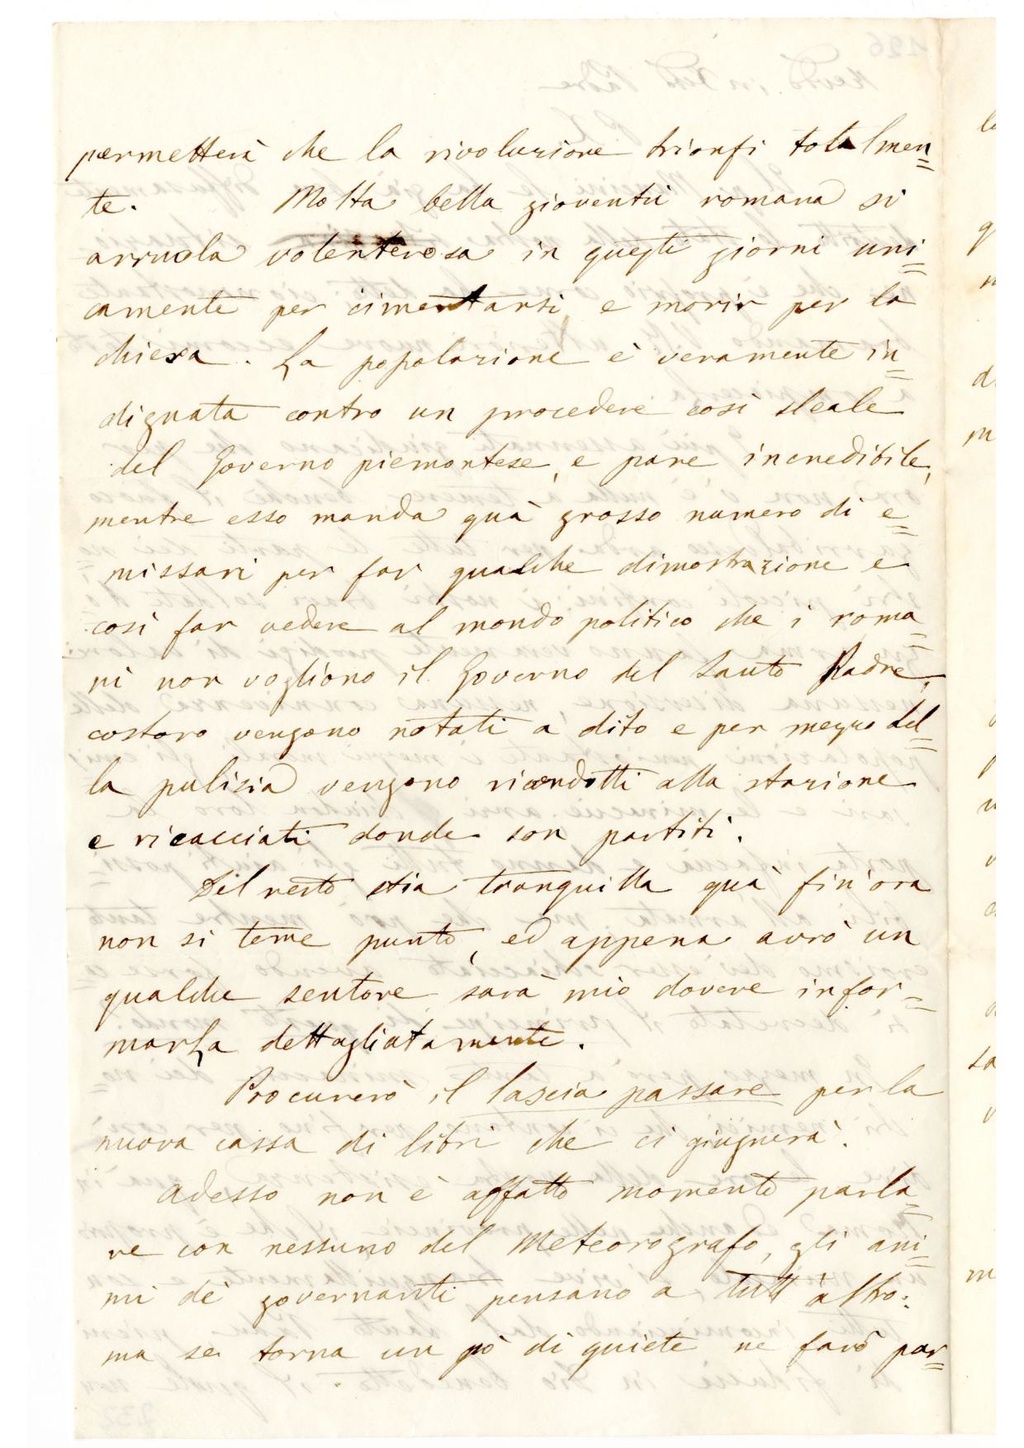 permetterà che la rivoluzione trionfi totalmen=
te. Molta bella gioventù romana si
arruola volenterosa in questi giorni uni=
camente per cimentarsi e morir per la
chiesa. La popolazione è veramente in=
dignata contro un procedere così sleale
del Governo piemontese, e pare incredibile,
mentre esso manda quà grosso numero di e=
missari per far qualche dimostrazione e
così far vedere al mondo politico che i roma=
ni non vogliono il Governo del Santo Padre,
costoro vengono notati a dito e per mezzo del=
la pulizia vengono ricondotti alla stazione
e ricacciati donde son partiti.
Del resto stia tranquilla quà fin'ora
non si teme punto, ed appena avrò un
qualche sentore sarà mio dovere infor=
marLa dettagliatamente.
Procurerò il lascia passare per la
nuova cassa di libri che ci giugnerà.
Adesso non è affatto momento parla=
re con nessuno del Meteorografo, gli ani=
mi de' governanti pensano a tutt'altro:
ma se torna un pò di quiete ne farò par=